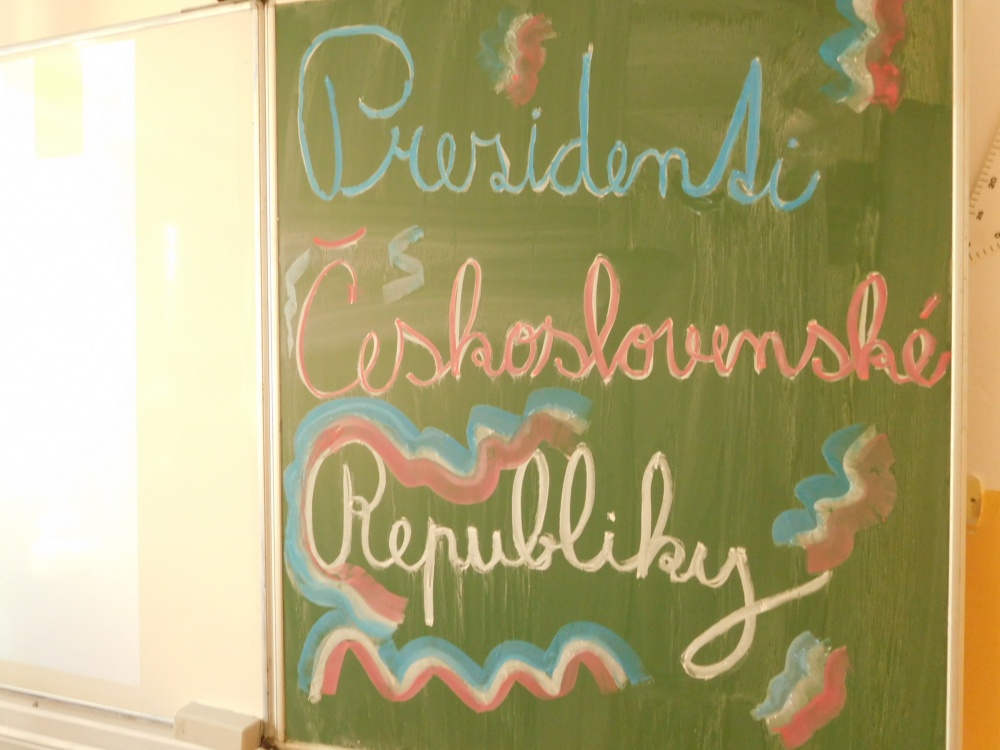 Prezidenti
Československé
Republiky
20